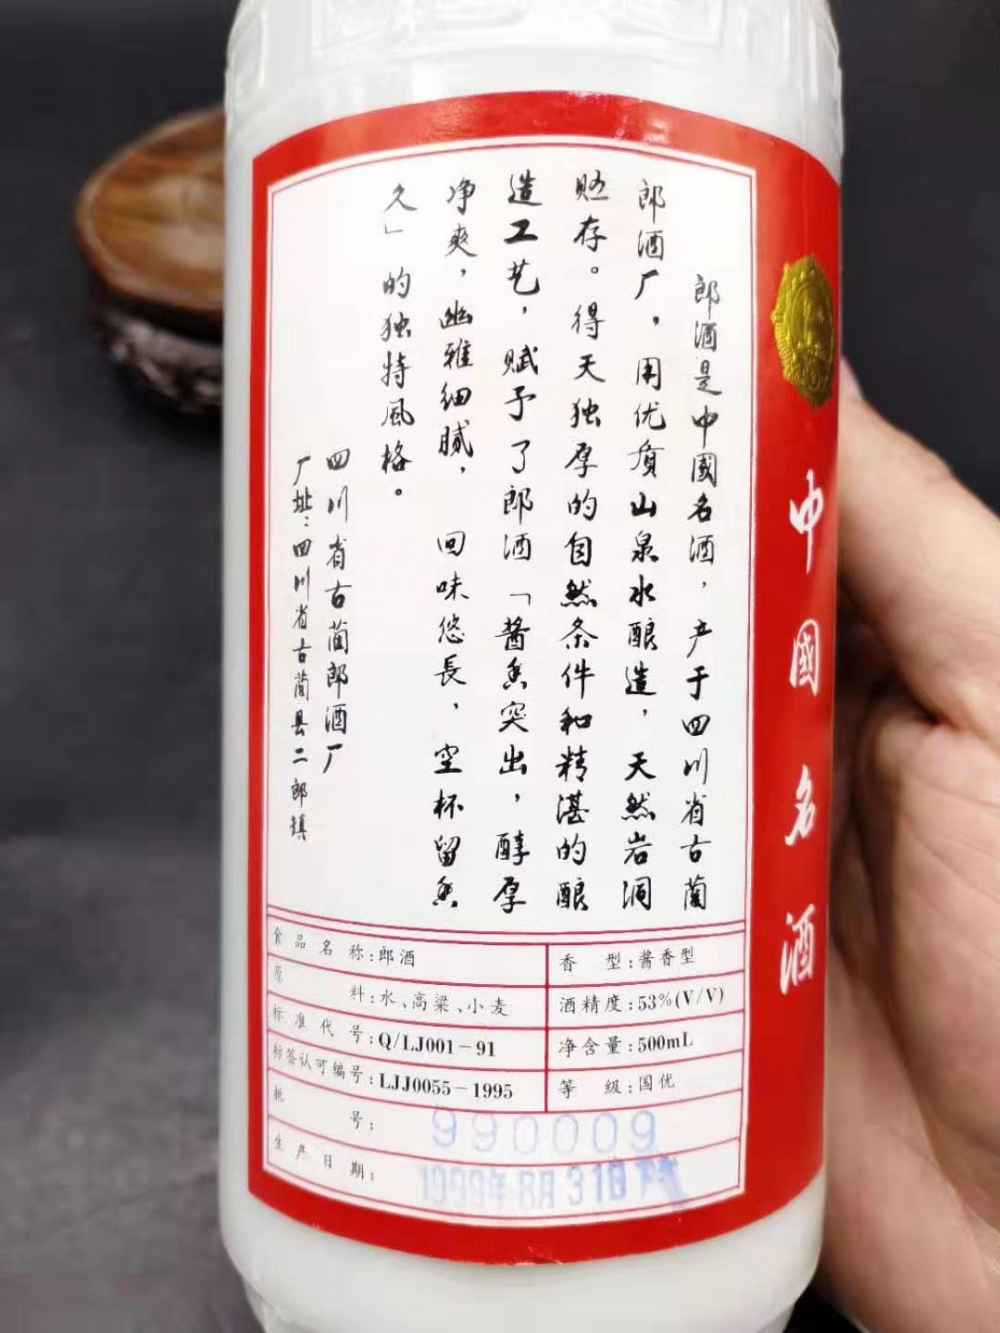 郎酒是中國名酒，产于四川省古蔺
郎酒厂，用优质山泉水酿造，天然岩洞
贮存。得天独厚的自然条件和精湛的酿
造工艺，赋予了郎酒「酱香突出，醇厚
净爽，幽雅细腻，回味悠長，空杯留香
久」的独特風格。
四川省古蔺郎酒厂
厂址：四川省古蔺县二郎镇
中國名酒
食品名称：郎酒
香型：酱香型
原料：水、高粱、小麦
酒精度：53%(V/V)
标准代号：Q/LJ001-91
净含量：500mL
标签认可编号：LJJ0055-1995
等级：国优
批号：990009
生产日期：1999年8月31日